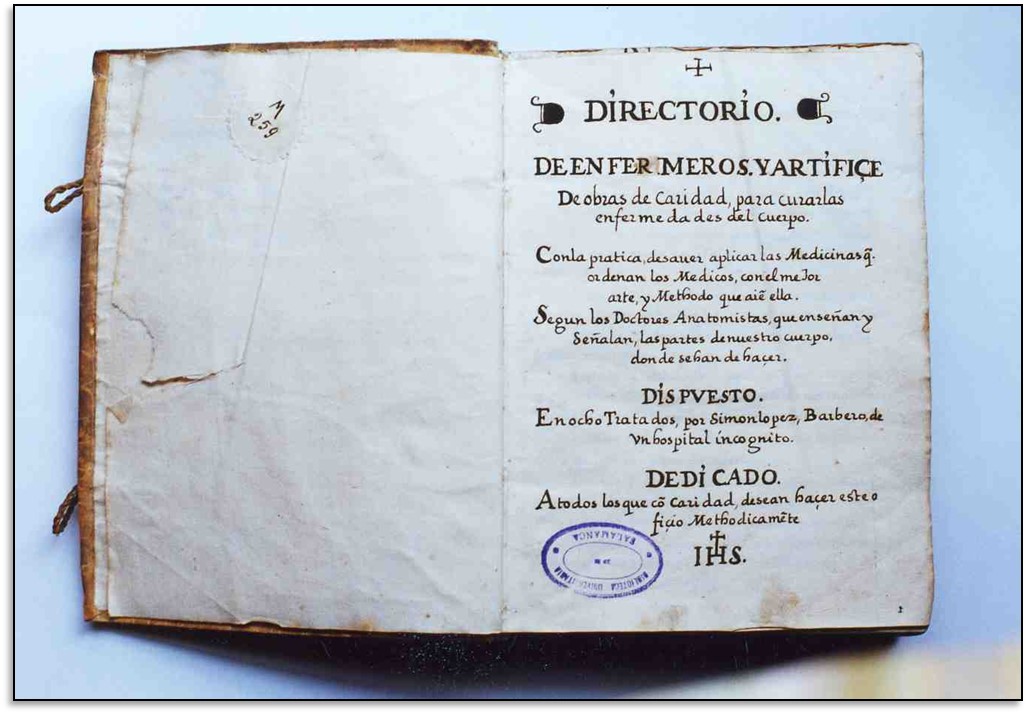 M
259
DIRECTORIO.
DE ENFERMEROS. Y ARTIFIÇE
De obras de Caridad, para curarlas
enfermedades del Cuerpo.
Conla pratica, desaver aplicar las Medicinas q̃.
ordenan los Medicos, con el meJor
arte, y Methodo que aiẽ ella.
Segun los Doctores Anatomistas, que enseñan y
Señalan, las partes denuestro cuerpo,
donde sehan de haçer.
DISPVESTO.
En ocho Tratados, por Simon lopez, Barbero, de
vn hospital incognito.
DEDICADO.
A todos los que cõ Caridad, desean haçer este o
fiçio Methodicamẽte
IHS.
BIBLIOTECA UNIVERSITARIA
SALAMANCA
1